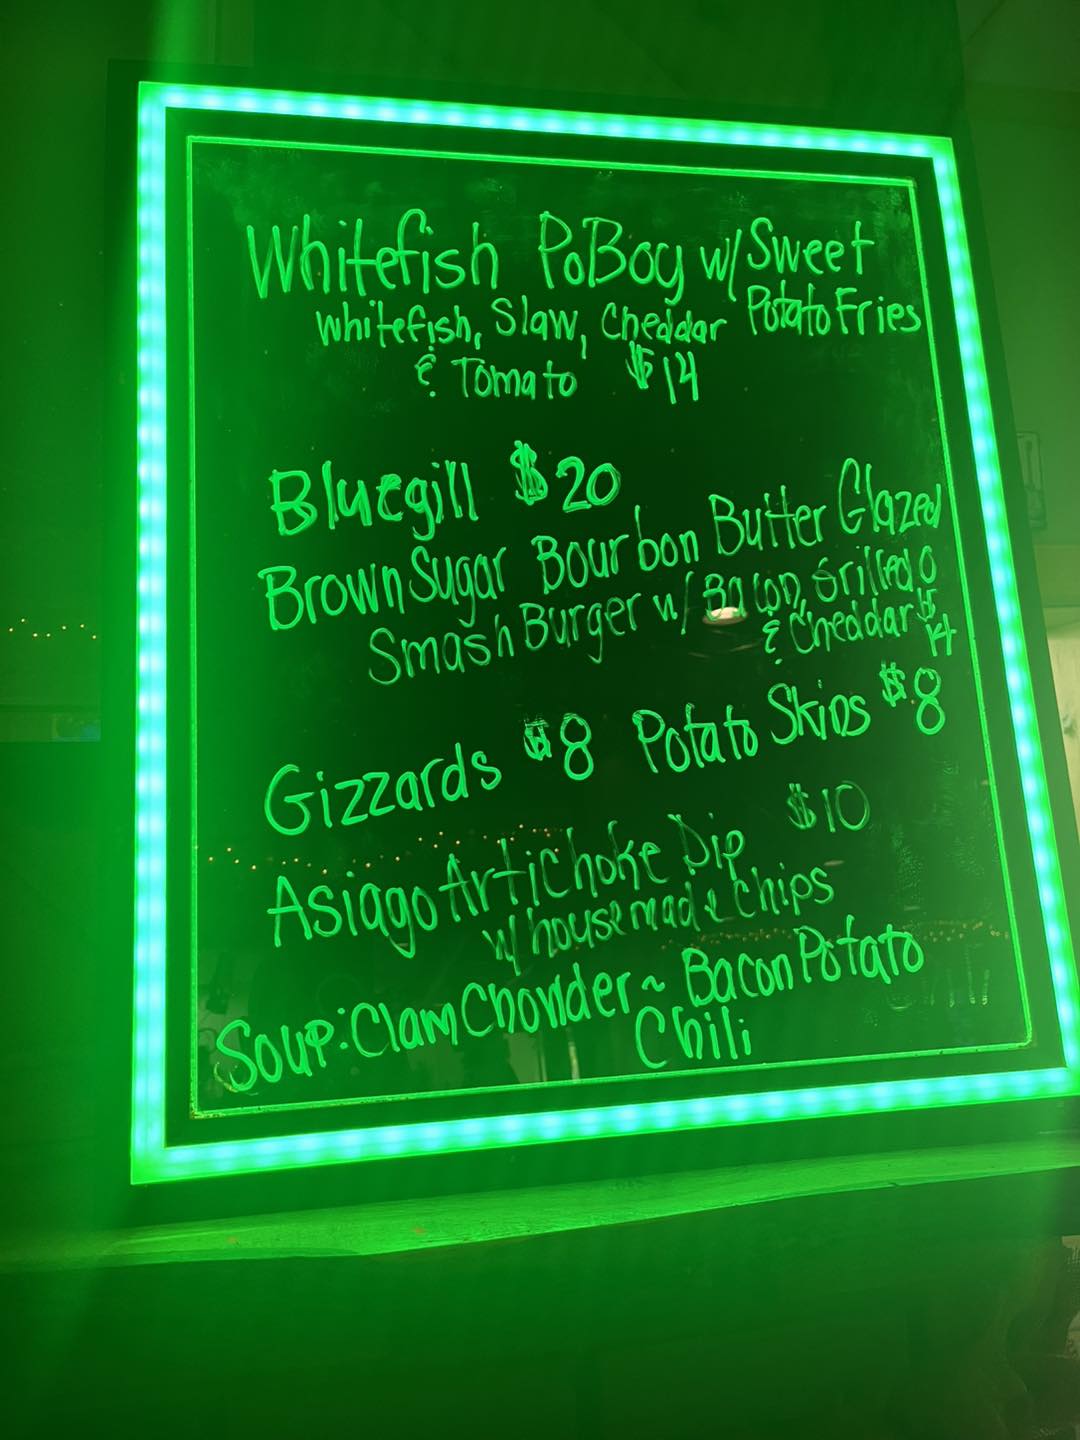 Whitefish PoBoy w/ Sweet
Potato Fries
Whitefish, Slaw, Cheddar
& Tomato $14
Bluegill $20
Brown Sugar Bourbon Butter Glazed
Smash Burger w/ Bacon, Grilled O
& Cheddar $14
Gizzards $8 Potato Skins $8
Asiago Artichoke Dip $10
w/ housemade Chips
Soup: Clam Chowder ~ Bacon Potato
Chili